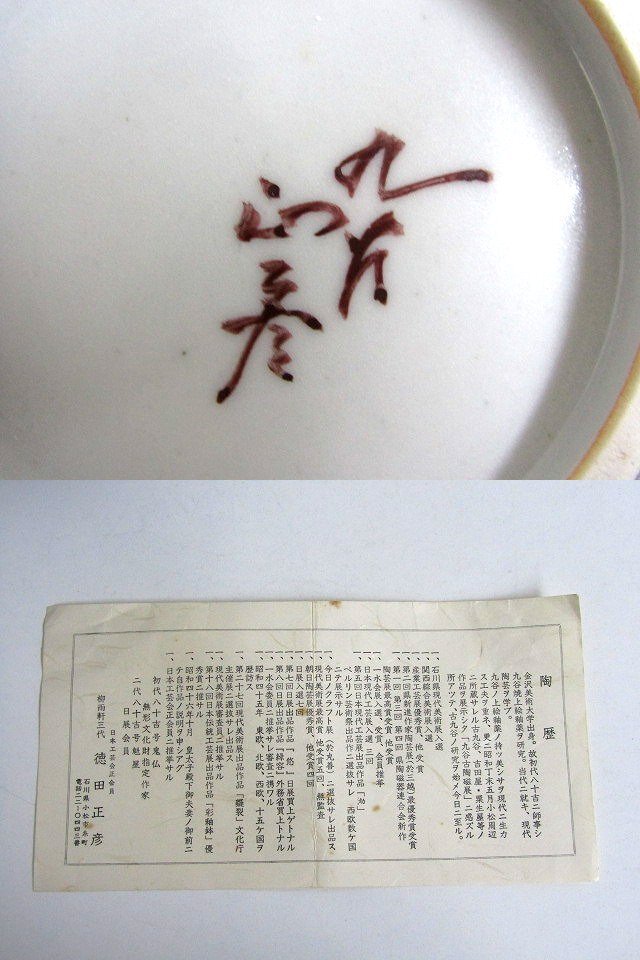 九谷
正彦
陶歴
金沢美術大学出身。故初代八十吉ニ師事シ
九谷焼上絵釉薬ヲ研究。当代ニ就キ、現代
陶芸ヲ学ブ。
九谷ノ上絵釉薬ノ持ツ美シサヲ現代ニ生カ
ス工夫ヲ重ネ、更ニ昭和丁未五月小松周辺
ニ所蔵サレシ古九谷・吉田屋・粟生屋等ノ
作品ヲ展示シタ「九谷古陶磁展」ニ感ズル
所アツテ、古九谷ノ研究ヲ始メ今日ニ至ル。
一、石川県現代美術展入選
関西綜合美術展入選
一、産業工芸展優秀賞 他受賞
一、第四回県新進作家陶芸展(於三越)最優秀賞受賞
一、第一回 第三回 第四回 県陶磁器連合会新作
陶芸展最高賞受賞 他受賞
一、一水会展入選 入賞、会員推挙
一、日本現代工芸展入選 三回
一、第五回日本現代工芸展出品作品「泑」
ベルリン芸術祭出品作ニ選抜サレ、西欧数ケ国
ニテ展示サル
一、今日ノクラフト展(於丸善)ニ選抜サレ出品ス
一、現代美術展最高賞 他受賞五回、無監査
一、朝日陶芸展優秀賞 他受賞四回
一、日展入選七回
一、第七回日展出品作品「悠」日展買上ゲトナル
一、第八回日展出品作品「緑容」外務省買上トナル
一、一水会委員ニ推挙サレ審査ニ携ワル
一、昭和四十五年 東欧、北欧、西欧、十五ケ国ヲ
歴訪ス
一、第二十七回現代美術展出品作品「[...]裂」文化庁
主催展ニ選抜サレ出品ス
一、現代美術展審査員ニ推挙サル
一、第十八回日本伝統工芸展出品作品「彩釉鉢」優
秀賞ニ推サル
一、昭和四十六年十月 皇太子殿下御夫妻ノ御前ニ
テ自作品ノ説明ヲ申シアグ
一、日本工芸会正会員ニ推挙サル
初代八十吉号鬼仏
無形文化財指定作家
二代八十吉号魁屋
日展会員
柳雨軒三代 徳田正彦
日本工芸会正会員
石川県小松市[...]町
電話二二-〇四四三番